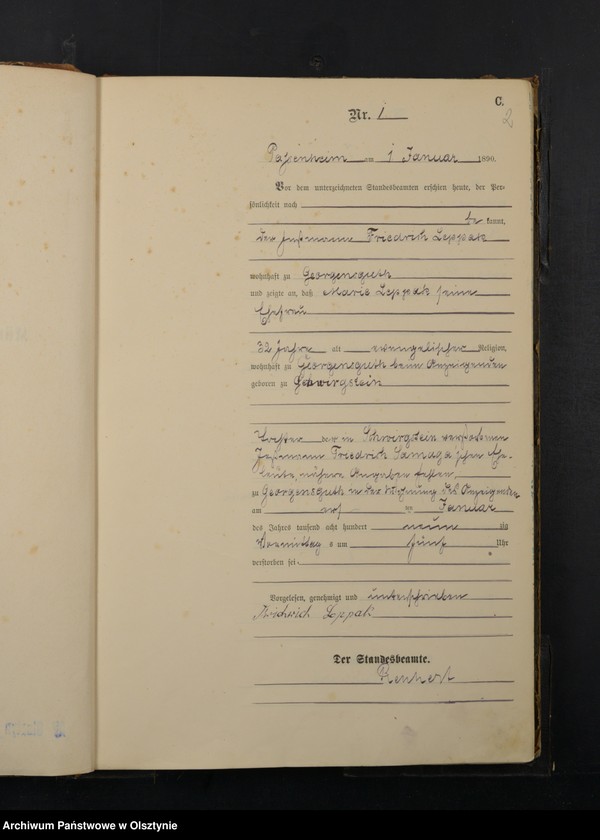 C.
2
Nr. 1
Passenheim am 1 Januar 1890.
Vor dem unterzeichneten Standesbeamten erschien heute, der Per-
sönlichkeit nach
be kannt,
der Friedrich Leppak
wohnhaft zu Georgensguth
und zeigte an, daß Marie Leppak seine
Ehefrau
32 Jahre alt evangelischer Religion,
wohnhaft zu Georgensguth beim Anzeigenden
geboren zu Schwirgstein
Tochter der in Schwirgstein verstorbenen
Friedrich Samaga schen Ehe-
leute, nähere Angaben fehlen
zu Georgensguth in der Wohnung des Anzeigenden
am Januar
des Jahres tausend acht hundert neun zig
Vormittag s um fünf Uhr
verstorben sei
Vorgelesen, genehmigt und unterschrieben
Leppak
Der Standesbeamte.
Archiwum Państwowe w Olsztynie